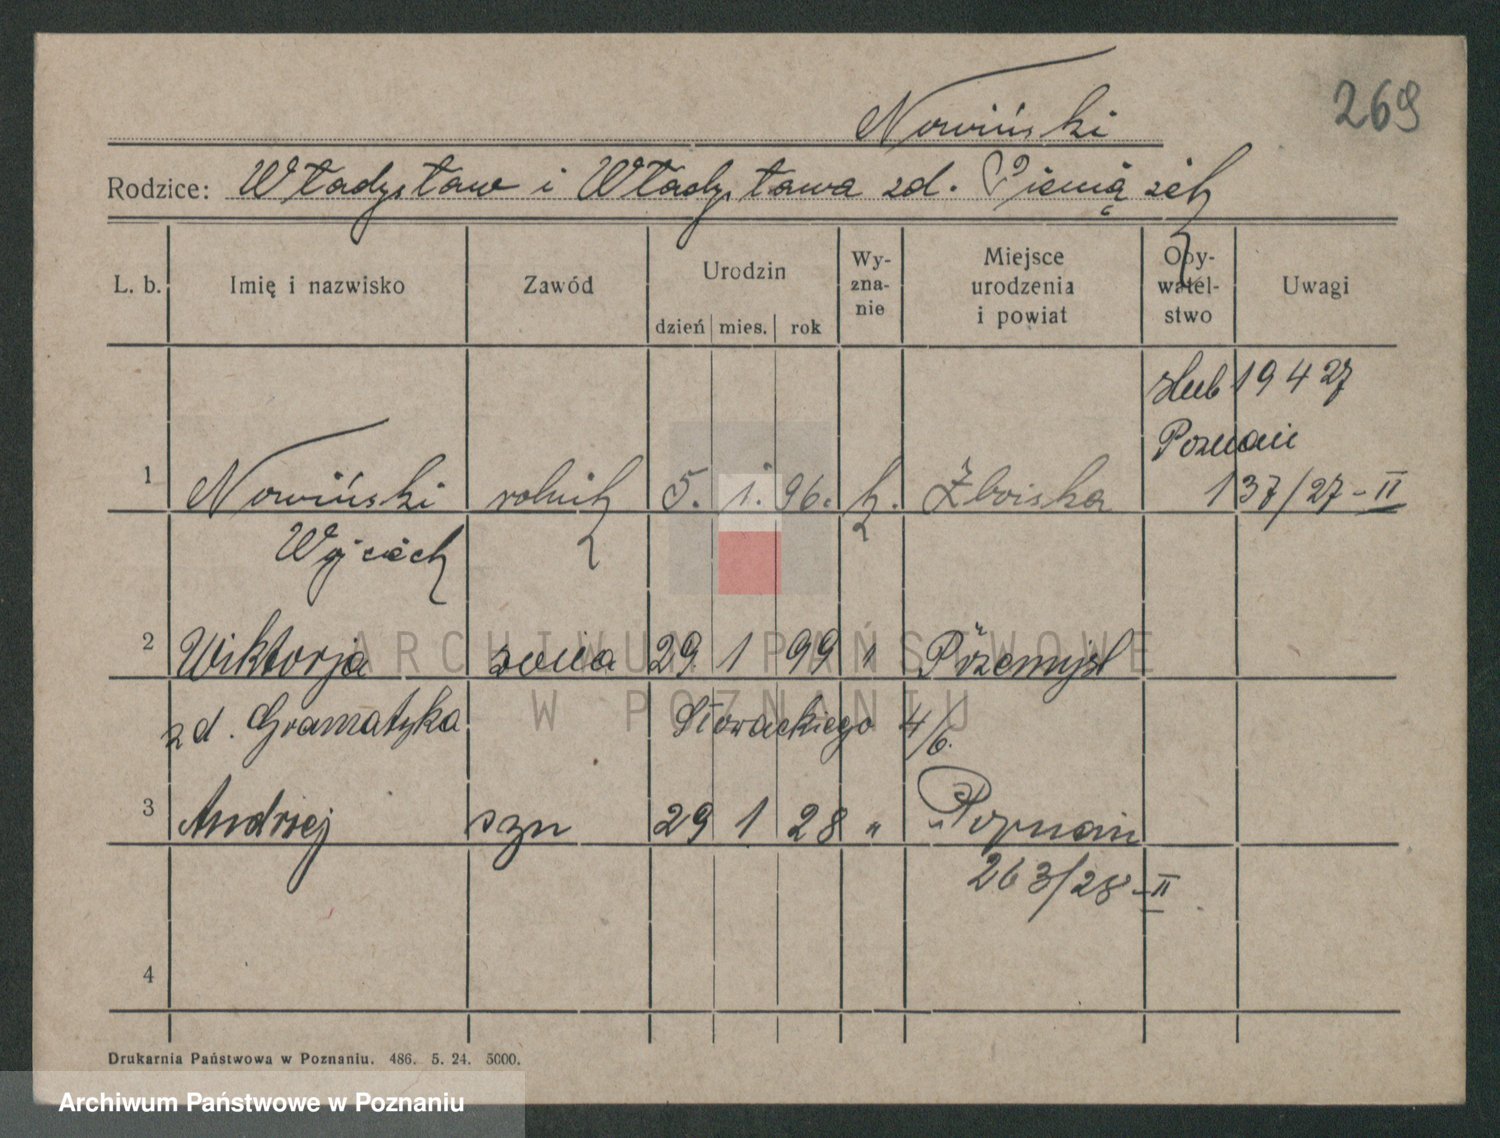 Nowiński
269
Rodzice: Władysław i Władysława zd. Pieniążek
L. b. Imię i nazwisko Zawód Urodzin dzień mies. rok Wy-zna-nie Miejsce urodzenia i powiat Oby-watel-stwo Uwagi
ślub 19 4 27
Poznań
1 Nowiński rolnik 5. 1. 96. k. Żboiska 137/27-II
Wojciech
2 Wiktorja żona 29 1 99 " Przemyśl
zd. Gramatyka Słowackiego 4/6.
3 Andrzej syn 29 1 28 " Poznań
263/28-II
4
Drukarnia Państwowa w Poznaniu. 486. 5. 24. 5000.
ARCHIWUM PAŃSTWOWE
W POZNANIU
Archiwum Państwowe w Poznaniu